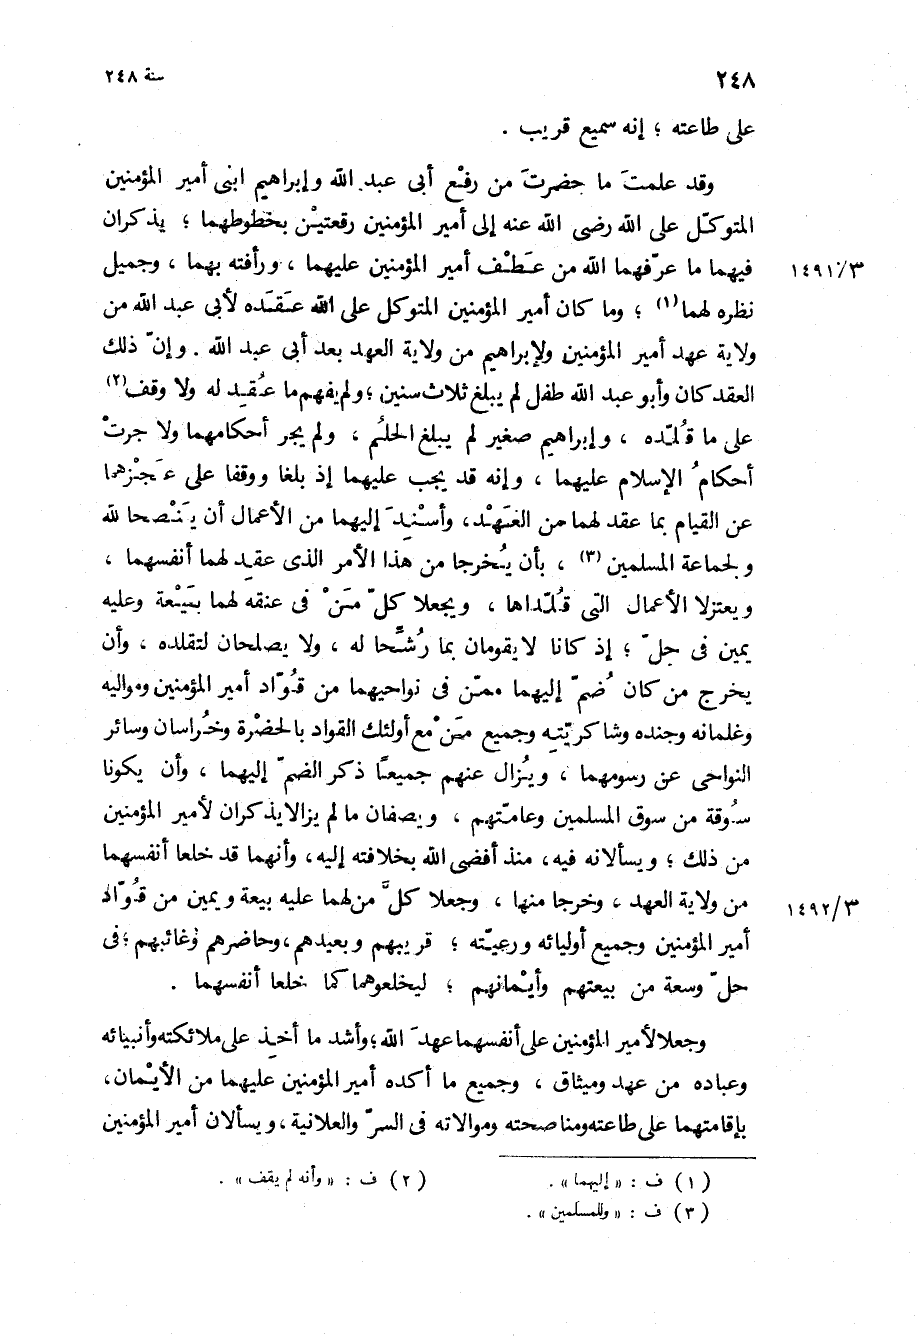 ٢٤٨
سنة ٢٤٨
على طاعته ؛ إنه سميع قريب .
وقد علمتَ ما حضرتَ من رفْع أبى عبد الله وإبراهيم ابنى أمير المؤمنين
المتوكّل على الله رضى الله عنه إلى أمير المؤمنين رقعتيْن بخطوطهما ؛ يذكران
فيهما ما عرّفهما الله من عَطْف أمير المؤمنين عليهما ، ورأفته بهما ، وجميل
١٤٩١/٣
نظره لهما (١) ؛ وما كان أمير المؤمنين المتوكل على الله عَقَده لأبى عبد الله من
ولاية عهد أمير المؤمنين ولإبراهيم من ولاية العهد بعد أبى عبد الله . وإنّ ذلك
العقد كان وأبو عبد الله طفل لم يبلغ ثلاث سنين ؛ ولم يفهم ما عُقِد له ولا وقف (٢)
على ما قُلّده ، وإبراهيم صغير لم يبلغ الحلُم ، ولم يجر أحكامهما ولا جرتْ
أحكامُ الإسلام عليهما ، وإنه قد يجب عليهما إذ بلغا ووقفا على عَجْزهما
عن القيام بما عقد لهما من العَهْد، وأسْنِدَ إليهما من الأعمال أن يَنْصحا لله
ولجماعة المسلمين (٣) ، بأن يُخرجا من هذا الأمر الذى عقِد لهما أنفسهما ،
ويعتزلا الأعمال التى قُلّداها ، ويجعلا كلّ مَنْ فى عنقه لهما بَيْعة وعليه
يمين فى حِلّ ؛ إذ كانا لا يقومان بما رُشِّحا له ، ولا يصلحان لتقلده ، وأن
يخرج من كان ضُمّ إليهما ممّن فى نواحيهما من قُوّاد أمير المؤمنين ومواليه
وغلمانه وجنده وشاكريّته وجميع مَنْ مع أولئك القواد بالحضْرة وخُراسان وسائر
النواحى عن رسومهما ، ويُزال عنهم جميعًا ذكر الضمّ إليهما ، وأن يكونا
سُوقة من سوق المسلمين وعامّتهم ، ويصفان ما لم يزالا يذكران لأمير المؤمنين
من ذلك ؛ ويسألانه فيه، منذ أفضى الله بخلافته إليه، وأنهما قد خلعا أنفسهما
من ولاية العهد ، وخرجا منها ، وجعلا كلَّ من لهما عليه بيعة ويمين من قُوّاد
١٤٩٢/٣
أمير المؤمنين وجميع أوليائه ورعيّته ؛ قريبهم وبعيدهم، وحاضرهم وغائبهم ؛ فى
حلّ وسعة من بيعتهم وأيْمانهم ؛ ليخلعوهما كما خلعا أنفسهما .
وجعلا لأمير المؤمنين على أنفسهما عهدَ الله ؛ وأشد ما أخِذ على ملائكته وأنبيائه
وعباده من عهد وميثاق ، وجميع ما أكده أمير المؤمنين عليهما من الأيْمان،
بإقامتهما على طاعته ومناصحته وموالاته فى السرّ والعلانية ، ويسألان أمير المؤمنين
(١) ف : « إليهما » .
(٢) ف : « وأنه لم يقف » .
(٣) ف : « وللمسلمين » .